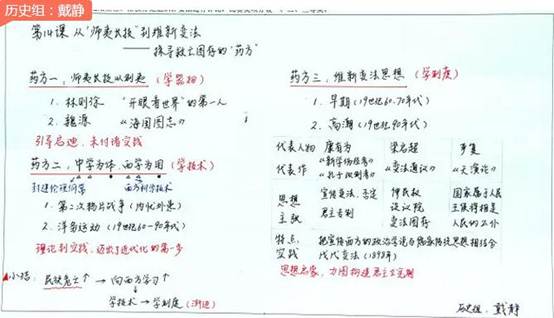 历史组：戴静
第14课 从"师夷长技"到维新变法
——探寻救亡图存的"药方"
药方一，师夷长技以制夷（学器物）
1. 林则徐 "开眼看世界"的第一人
2. 魏源 《海国图志》
引导启迪，未付诸实践
药方二，中学为体，西学为用（学技术）
封建伦理纲常 西方科学技术
1. 第二次鸦片战争（内忧外患）
2. 洋务运动（19世纪60-90年代）
理论到实践，迈出近代化的第一步
小结：民族危亡↑ → 向西方学习↑
学技术 → 学制度（渐进）
药方三，维新变法思想（学制度）
1. 早期（19世纪60-70年代）
2. 高潮（19世纪90年代）
代表人物 康有为 梁启超 严复
代表作 《新学伪经考》 《变法通议》 《天演论》
《孔子改制考》
思想 宣传变法，否定 伸民权 国家属于人民
主张 君主专制 设议院 王侯将相是
变法图存 人民的公仆
特点： 把宣传西方的政治学说与儒家传统思想相结合
实践 戊戌变法（1898年）
思想启蒙，力图构建君主立宪制
历史组：戴静